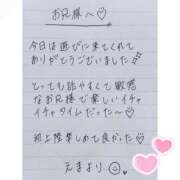 お兄様へ♡
今日は遊びに来てくれて
ありがとうございました✨
とっても話やすくて敏感
なお兄様で楽しいイチャ
イチャタイムだった〜♡
机上陸楽しめて良かった♡
えまより☺